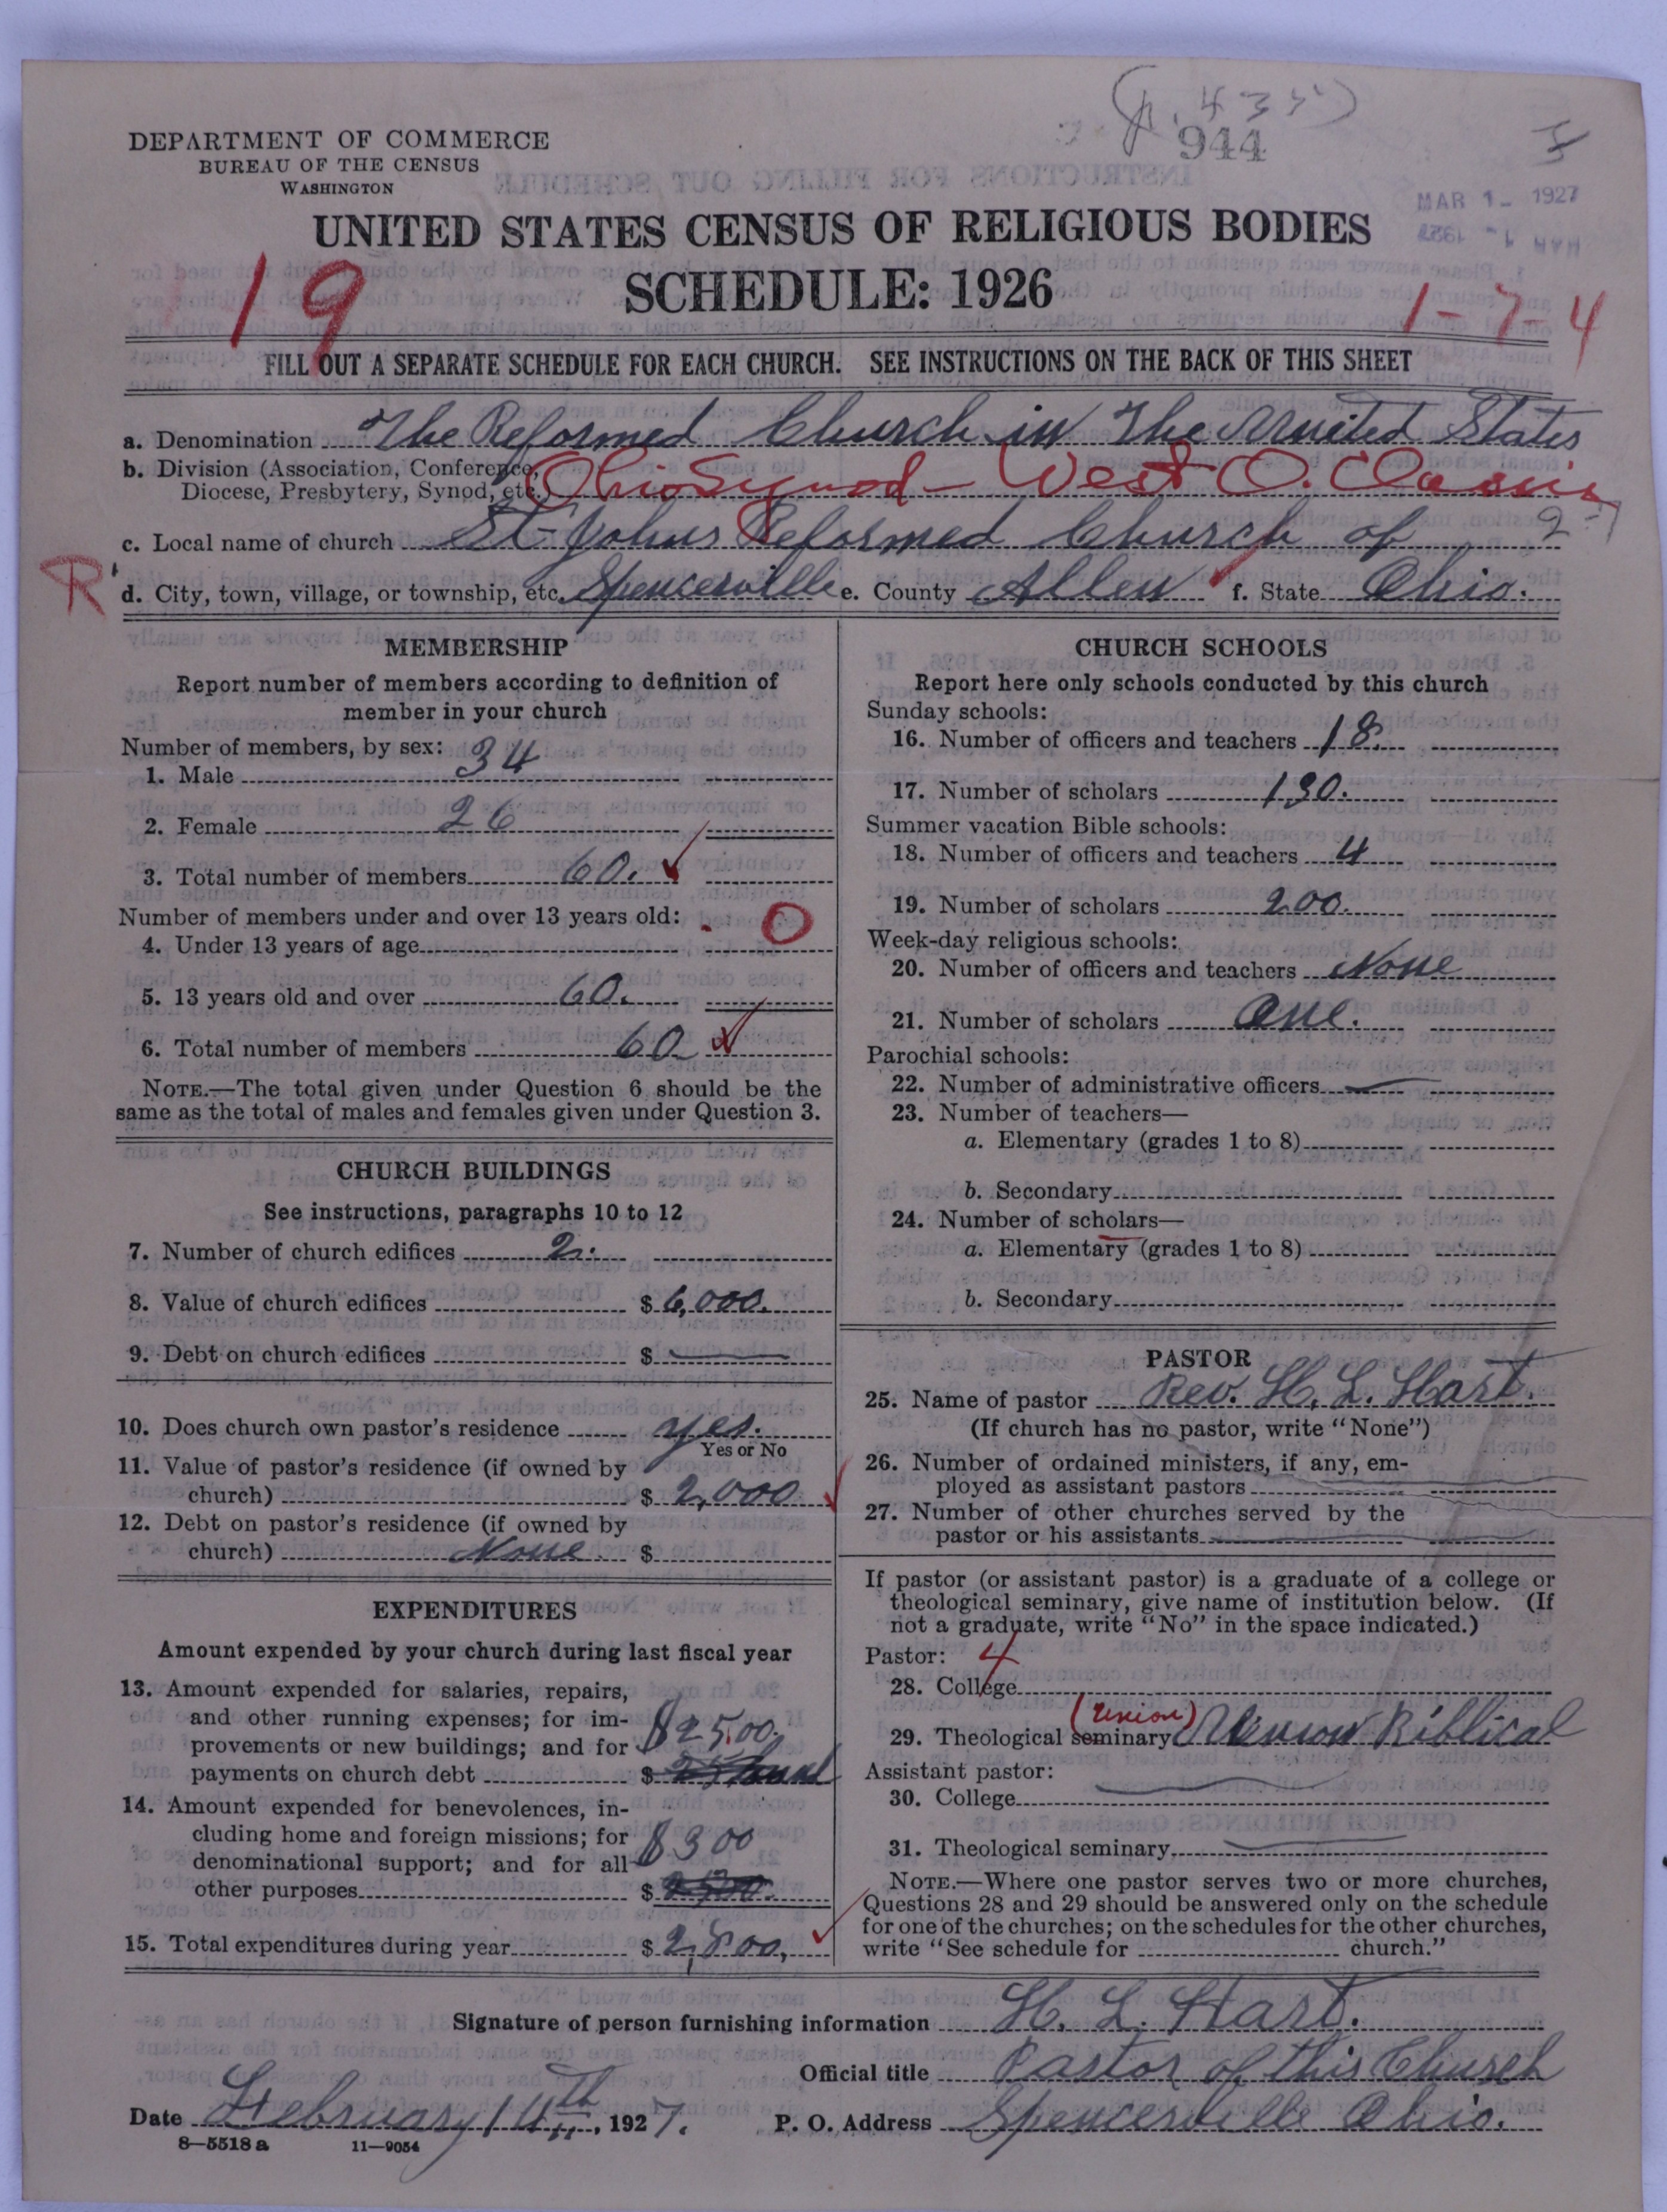 (p. 435)
944
DEPARTMENT OF COMMERCE
BUREAU OF THE CENSUS
WASHINGTON
MAR 1 - 1927
UNITED STATES CENSUS OF RELIGIOUS BODIES
SCHEDULE: 1926
19
1-7-4
FILL OUT A SEPARATE SCHEDULE FOR EACH CHURCH. SEE INSTRUCTIONS ON THE BACK OF THIS SHEET
a. Denomination The Reformed Church in The United States
b. Division (Association, Conference,
Diocese, Presbytery, Synod, etc.) Ohio Synod - West O. Classis
c. Local name of church St Johns Reformed Church of
R
d. City, town, village, or township, etc. Spencerville e. County Allen f. State Ohio.
MEMBERSHIP
Report number of members according to definition of
member in your church
Number of members, by sex:
1. Male 34
2. Female 26
3. Total number of members 60. ✓
Number of members under and over 13 years old:
4. Under 13 years of age 0
5. 13 years old and over 60.
6. Total number of members 60 ✓
NOTE.—The total given under Question 6 should be the
same as the total of males and females given under Question 3.
CHURCH BUILDINGS
See instructions, paragraphs 10 to 12
7. Number of church edifices 2.
8. Value of church edifices $ 6,000.
9. Debt on church edifices $ —
10. Does church own pastor's residence yes.
Yes or No
11. Value of pastor's residence (if owned by
church) $ 2,000 ✓
12. Debt on pastor's residence (if owned by
church) None $
EXPENDITURES
Amount expended by your church during last fiscal year
13. Amount expended for salaries, repairs,
and other running expenses; for im-
provements or new buildings; and for $2500.
payments on church debt $
14. Amount expended for benevolences, in-
cluding home and foreign missions; for $300
denominational support; and for all
other purposes $
15. Total expenditures during year $ 2,800, ✓
CHURCH SCHOOLS
Report here only schools conducted by this church
Sunday schools:
16. Number of officers and teachers 18.
17. Number of scholars 130.
Summer vacation Bible schools:
18. Number of officers and teachers 4
19. Number of scholars 200.
Week-day religious schools:
20. Number of officers and teachers None
21. Number of scholars One.
Parochial schools:
22. Number of administrative officers —
23. Number of teachers—
a. Elementary (grades 1 to 8)
b. Secondary
24. Number of scholars—
a. Elementary (grades 1 to 8)
b. Secondary
PASTOR
25. Name of pastor Rev. H. L. Hart.
(If church has no pastor, write "None")
26. Number of ordained ministers, if any, em-
ployed as assistant pastors
27. Number of other churches served by the
pastor or his assistants
If pastor (or assistant pastor) is a graduate of a college or
theological seminary, give name of institution below. (If
not a graduate, write "No" in the space indicated.)
Pastor: 4
28. College
(Union)
29. Theological seminary Union Biblical
Assistant pastor:
30. College
31. Theological seminary
NOTE.—Where one pastor serves two or more churches,
Questions 28 and 29 should be answered only on the schedule
for one of the churches; on the schedules for the other churches,
write "See schedule for church."
Signature of person furnishing information H. L. Hart.
Official title Pastor of this Church
Date February 14th, 1927. P. O. Address Spencerville Ohio.
8—5518 a 11—9054